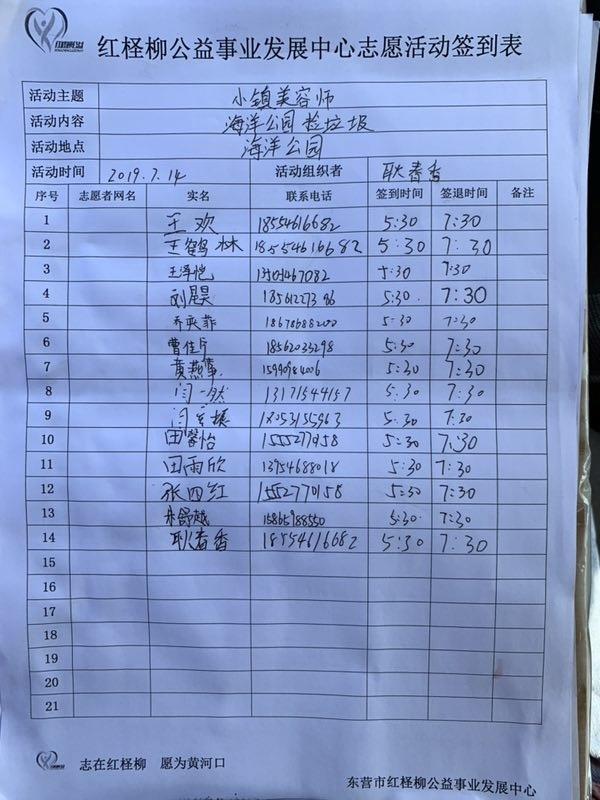 红柽柳公益事业发展中心志愿活动签到表
活动主题 小镇美容师
活动内容 海洋公园捡垃圾
活动地点 海洋公园
活动时间 2019.7.14 活动组织者 耿春香
序号 志愿者网名 实名 联系电话 签到时间 签退时间 备注
1 王欢 18554616682 5:30 7:30
2 王鹤林 18554616682 5:30 7:30
3 王淳恺 5:30 7:30
4 刘星昊 18561227396 5:30 7:30
5 乔爽菲 18678688200 5:30 7:30
6 曹佳 18562033298 5:30 7:30
7 黄燕 15990984006 5:30 7:30
8 闫一然 13171544157 5:30 7:30
9 闫 18053155963 5:30 7:30
10 田馨怡 5:30 7:30
11 田雨欣 13954688018 5:30 7:30
12 张四红 15552770158 5:30 7:30
13 舒越 15865988550 5:30 7:30
14 耿春香 18554616682 5:30 7:30
15
16
17
18
19
20
21
志在红柽柳 愿为黄河口
东营市红柽柳公益事业发展中心